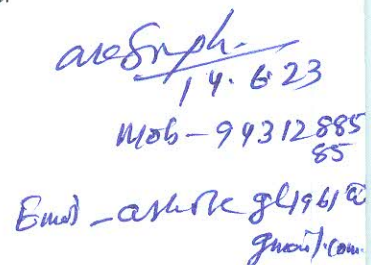 14.6.23
Mob - 94312885
85
Email - ashokgl1961@
gmail.com